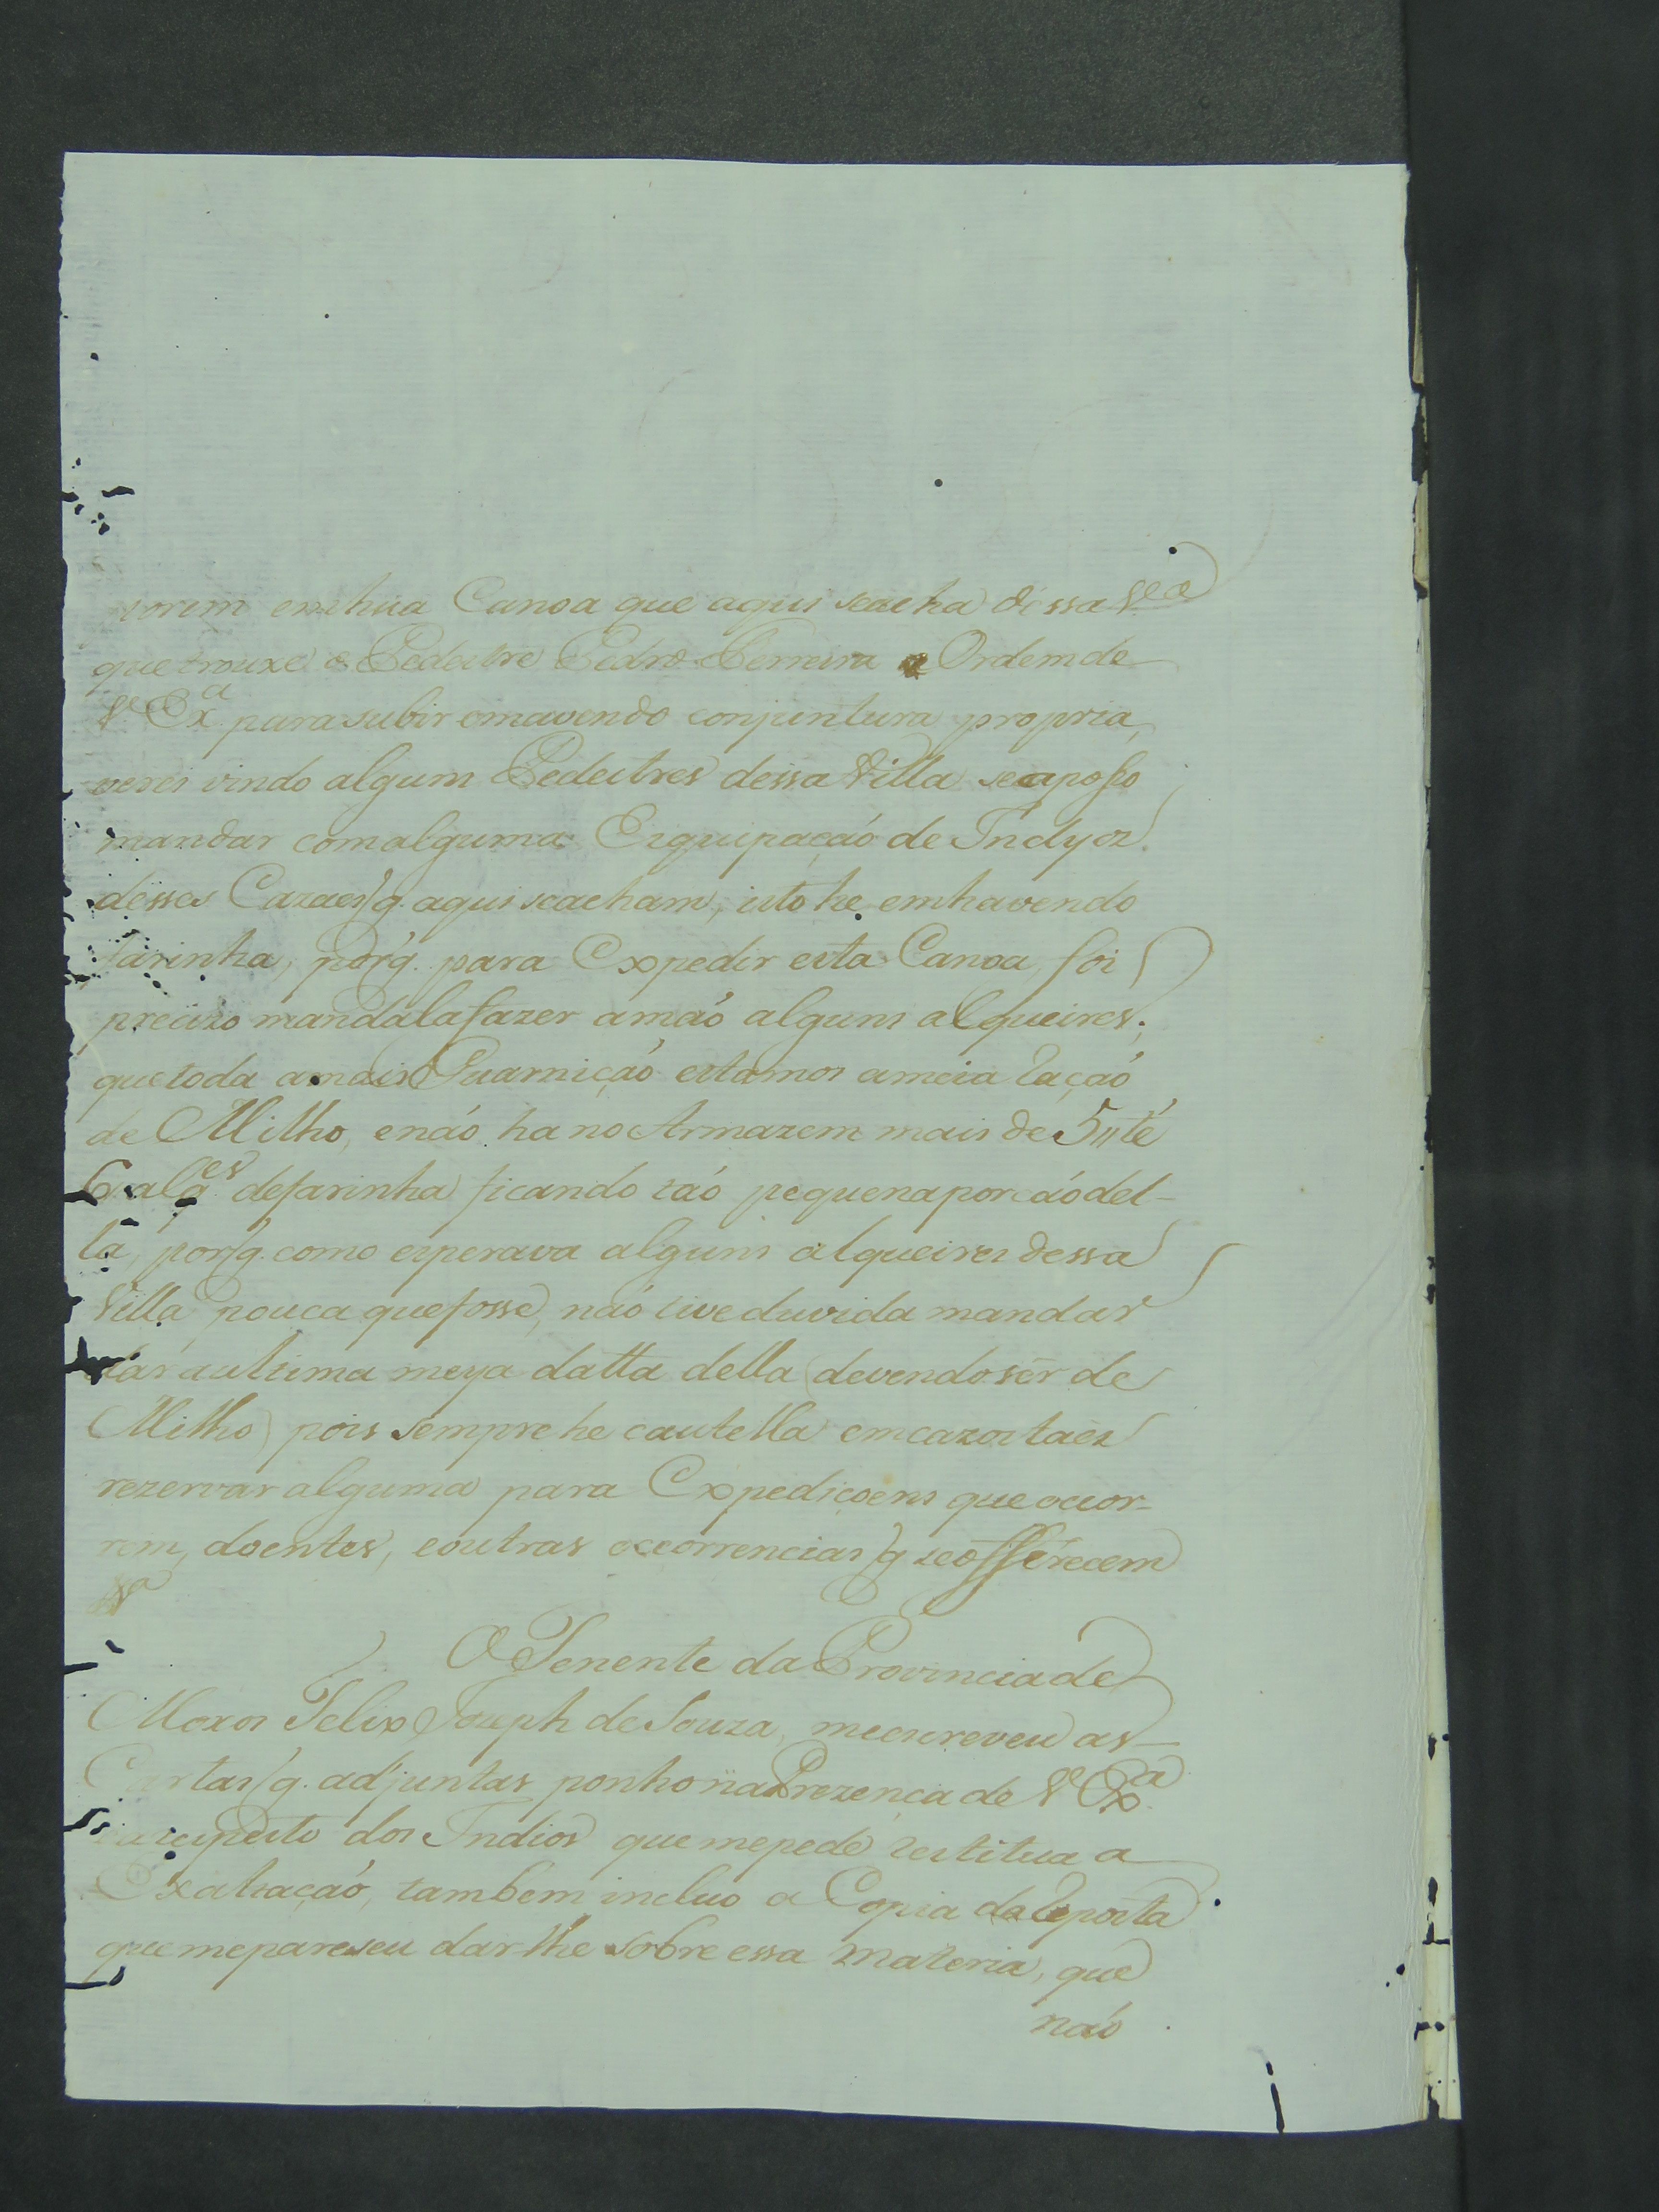 porem em hũa Canoa que aqui seacha dessa V.ª
que trouxe o Pedestre Pedro Ferreira a Ordem de
V. Ex.ª para subir em avendo conjuntura propria,
verei vindo algum Pedestres dessa Villa se a poſso
mandar com alguma Esquipaçaó de Indyos
desses Cazaes q. aqui seacham, isto he, emhavendo
farinha, porq. para Expedir esta Canoa foi
precizo mandala fazer amaó alguns alqueires,
que toda a mais Guarniçaó estamos ameia raçaó
de Milho, enaó ha no Armazem mais de 5 " té
6 alq.es defarinha ficando taó pequena porcaó del-
la, porq. como esperava alguns alqueires dessa
Villa pouca que fosse, naó tive duvida mandar
dar aultima meya datta della (devendo sér de
Milho) pois sempre he cautella emcazos taés
rezervar alguma para Expediçoens que occor-
rem, doentes, eoutras occorrencias q. se offérecem
&ª
O Tenente da Provincia de
Moxos Felix Joseph de Souza, meescreveu as
Cartas q. adjuntas ponho na Prezença de V. Ex.ª
arespeito dos Indios que mepede restitua a
Exaltaçaó, tambem incluo a Copia da Reposta
que mepareseu darlhe sobre essa materia, que
naó